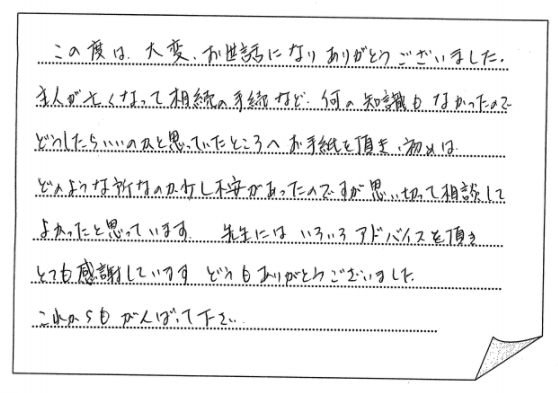 この度は、大変、お世話になりありがとうございました。
主人が亡くなって相続の手続など、何の知識もなかったので
どうしたらいいのかと思っていたところへお手紙を頂き、初めは
どのような所なのか少し不安があったのですが思い切って相談して
よかったと思っています。 先生にはいろいろアドバイスを頂き
とても感謝しています どうもありがとうございました。
これからもがんばって下さい。